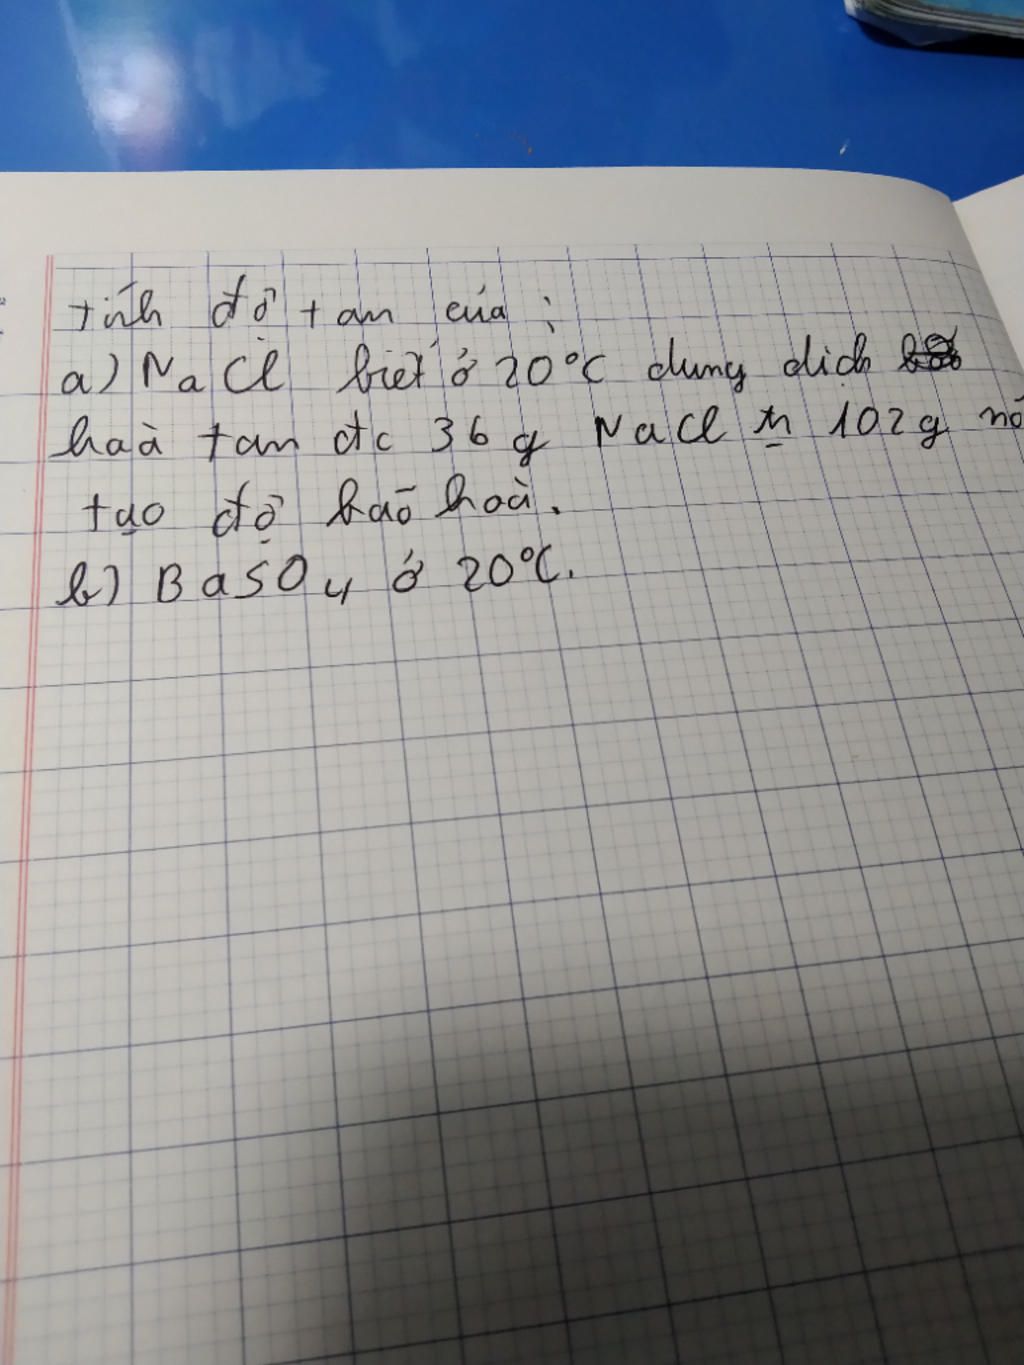 tính độ tan của :
a) NaCl biết ở 20°C dung dịch
hoà tan đc 36 g NaCl 102g
tạo độ bão hoà.
b) BaSO4 ở 20°C.